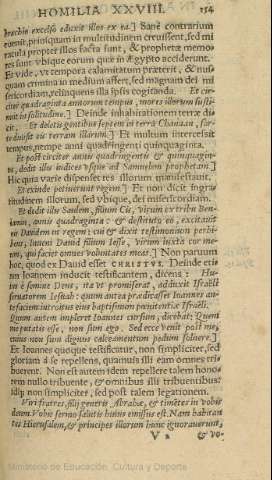 HOMILIA XXVIII. 154
brachio excelso eduxit illos ex ea.] Sanè contrarium
euenit, priusquam in multitudinem creuissent, sed mi
racula propter illos facta sunt, & prophetæ memo
res sunt vbique eorum quæ in Ægypto acciderunt.
Et vide, vt tempora calamitatum præterit, & nus
quam crimina in medium affert, sed magnam dei mi
sericordiam, relinquens illa ipsis cogitanda. Et cir
citer quadraginta annorum tempus, mores illorum susti-
nuit in solitudine.] Deinde inhabitationem terræ di
cit. Et deletis gentibus septem in terra Chanaan, sor-
te diuisit eis terram illarum.] Et multum intercessit
tempus, nempe anni quadringenti quinquaginta.
Et post circiter annis quadringentis & quinquagin-
ta, dedit illis iudices vsque ad Samuelem prophetam.]
Hic quia varie dispenset res illorum manifestant.
Et exinde petiuerunt regem.] Et non dicit ingra-
titudinem illorum, sed vbique, dei misericordiam.
Et dedit illis Saulem, filium Cis, virum ex tribu Ben-
iamin, annis quadraginta: & destituto eo, excitauit
eis Dauidem in regem: cui & dixit testimonium perhi-
bens, Inueni Dauid filium Iesse, virum iuxta cor me-
um, qui faciet omnes voluntates meas.] Non paruum
hoc, quod ex Dauid esset CHRISTVS. Deinde eti-
am Ioannem inducit testificantem, dicens: Hu-
ius è semine Deus, ita vt promiserat, adduxit Israëli
seruatorem Iesum: quum antea prædicasset Ioannes an-
te faciem introitus eius baptismum pœnitentiæ Israëli.
Quum autem impleret Ioannes cursum, dicebat: Quem
me putatis esse, non sum ego. Sed ecce venit post me,
cuius non sum dignus calceamentum pedum soluere.]
Et Ioannes quoque testificatur, non simpliciter, sed
gloriam à se repellens, quamuis illi eam omnes tri-
buerent. Non est autem idem repellere talem hono
rem nullo tribuente, & omnibus illi tribuentibus:
idque non simpliciter, sed post talem legationem.
Viri fratres, filij generis Abrahæ, & timētes in vobis
deum. Vobis sermo salutis huius emissus est. Nam habitan
tes Hierusalem, & principes illorum hunc ignorauerunt,
V 2 & vo-
Ministerio de Educación, Cultura y Deporte